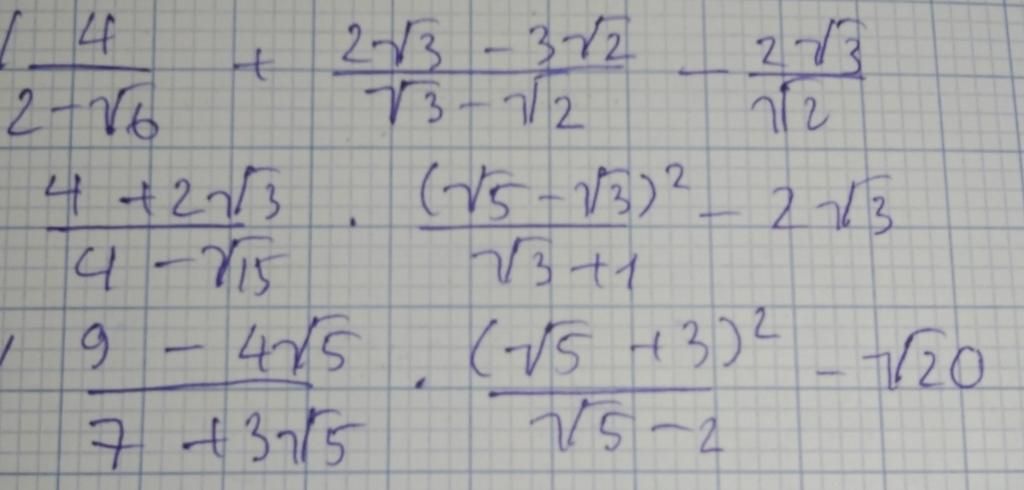 ( 4/(2-√6) + (2√3 - 3√2)/(√3 - √2) - 2√3/√2
(4 + 2√3)/(4 - √15) · (√5 - √3)²/(√3 + 1) - 2√3
(9 - 4√5)/(7 + 3√5) · (√5 + 3)²/(√5 - 2) - √20